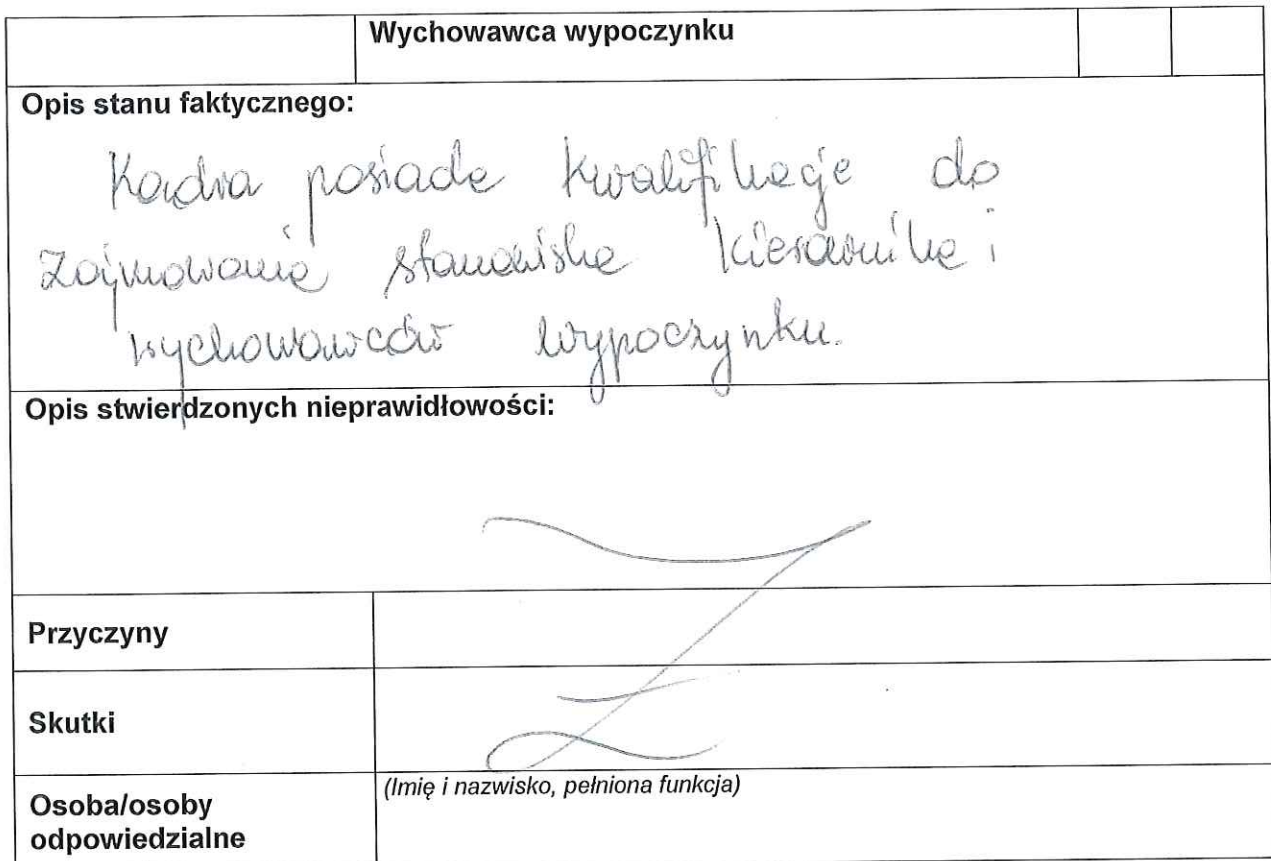 Wychowawca wypoczynku
Opis stanu faktycznego:
Kadra posiada kwalifikacje do
zajmowania stanowiska kierownika i
wychowawców wypoczynku.
Opis stwierdzonych nieprawidłowości:
Przyczyny
Skutki
Osoba/osoby
odpowiedzialne
(Imię i nazwisko, pełniona funkcja)